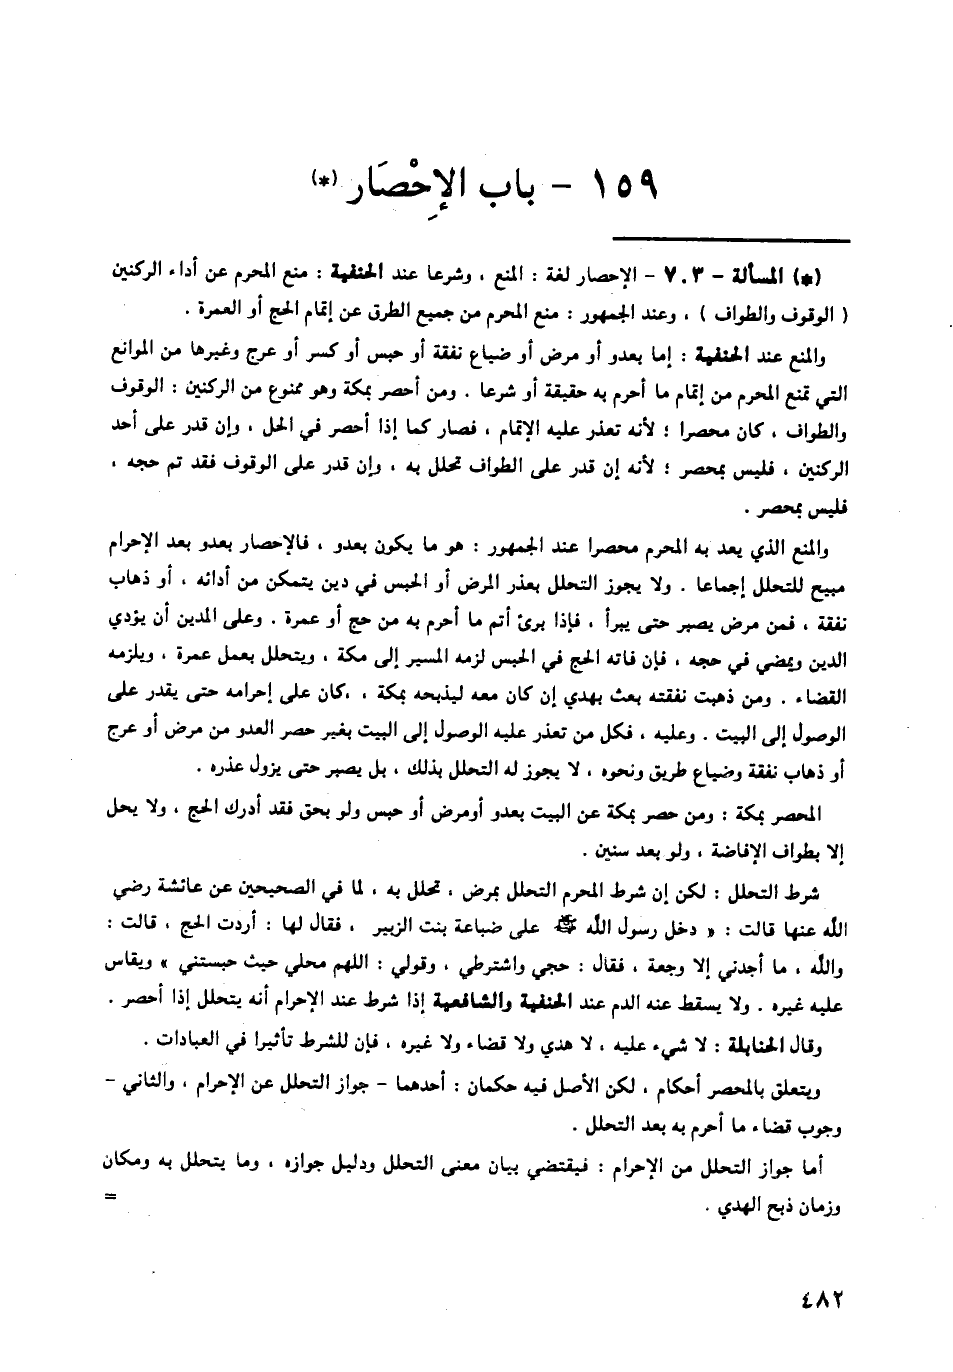 ١٥٩ - باب الإِحْصَار (*)
(*) المسألة - ٧٠٣ - الإحصار لغة : المنع ، وشرعا عند الحنفية : منع المحرم عن أداء الركنين
( الوقوف والطواف ) ، وعند الجمهور : منع المحرم من جميع الطرق عن إتمام الحج أو العمرة .
والمنع عند الحنفية : إما بعدو أو مرض أو ضياع نفقة أو حبس أو كسر أو عرج وغيرها من الموانع
التي تمنع المحرم من إتمام ما أحرم به حقيقة أو شرعا . ومن أحصر بمكة وهو ممنوع من الركنين : الوقوف
والطواف ، كان محصرا ؛ لأنه تعذر عليه الإتمام ، فصار كما إذا أحصر في الحل ، وإن قدر على أحد
الركنين ، فليس بمحصر ؛ لأنه إن قدر على الطواف تحلل به ، وإن قدر على الوقوف فقد تم حجه ،
فليس بمحصر .
والمنع الذي يعد به المحرم محصرا عند الجمهور : هو ما يكون بعدو ، فالإحصار بعدو بعد الإحرام
مبيح للتحلل إجماعا . ولا يجوز التحلل بعذر المرض أو الحبس في دين يتمكن من أدائه ، أو ذهاب
نفقة ، فمن مرض يصبر حتى يبرأ ، فإذا برئ أتم ما أحرم به من حج أو عمرة . وعلى المدين أن يؤدي
الدين ويمضي في حجه ، فإن فاته الحج في الحبس لزمه المسير إلى مكة ، ويتحلل بعمل عمرة ، ويلزمه
القضاء . ومن ذهبت نفقته بعث بهدي إن كان معه ليذبحه بمكة ، ،كان على إحرامه حتى يقدر على
الوصول إلى البيت . وعليه ، فكل من تعذر عليه الوصول إلى البيت بغير حصر العدو من مرض أو عرج
أو ذهاب نفقة وضياع طريق ونحوه ، لا يجوز له التحلل بذلك ، بل يصبر حتى يزول عذره .
المحصر بمكة : ومن حصر بمكة عن البيت بعدو أومرض أو حبس ولو بحق فقد أدرك الحج ، ولا يحل
إلا بطواف الإفاضة ، ولو بعد سنين .
شرط التحلل : لكن إن شرط المحرم التحلل بمرض ، تحلل به ، لما في الصحيحين عن عائشة رضي
الله عنها قالت : « دخل رسول الله ﷺ على ضباعة بنت الزبير ، فقال لها : أردت الحج ، قالت :
والله ، ما أجدني إلا وجعة ، فقال : حجي واشترطي ، وقولي : اللهم محلي حيث حبستني » ويقاس
عليه غيره . ولا يسقط عنه الدم عند الحنفية والشافعية إذا شرط عند الإحرام أنه يتحلل إذا أحصر .
وقال الحنابلة : لا شيء عليه ، لا هدي ولا قضاء ولا غيره ، فإن للشرط تأثيرا في العبادات .
ويتعلق بالمحصر أحكام ، لكن الأصل فيه حكمان : أحدهما - جواز التحلل عن الإحرام ، والثاني -
وجوب قضاء ما أحرم به بعد التحلل .
أما جواز التحلل من الإحرام : فيقتضي بيان معنى التحلل ودليل جوازه ، وما يتحلل به ومكان
وزمان ذبح الهدي . =
٤٨٢